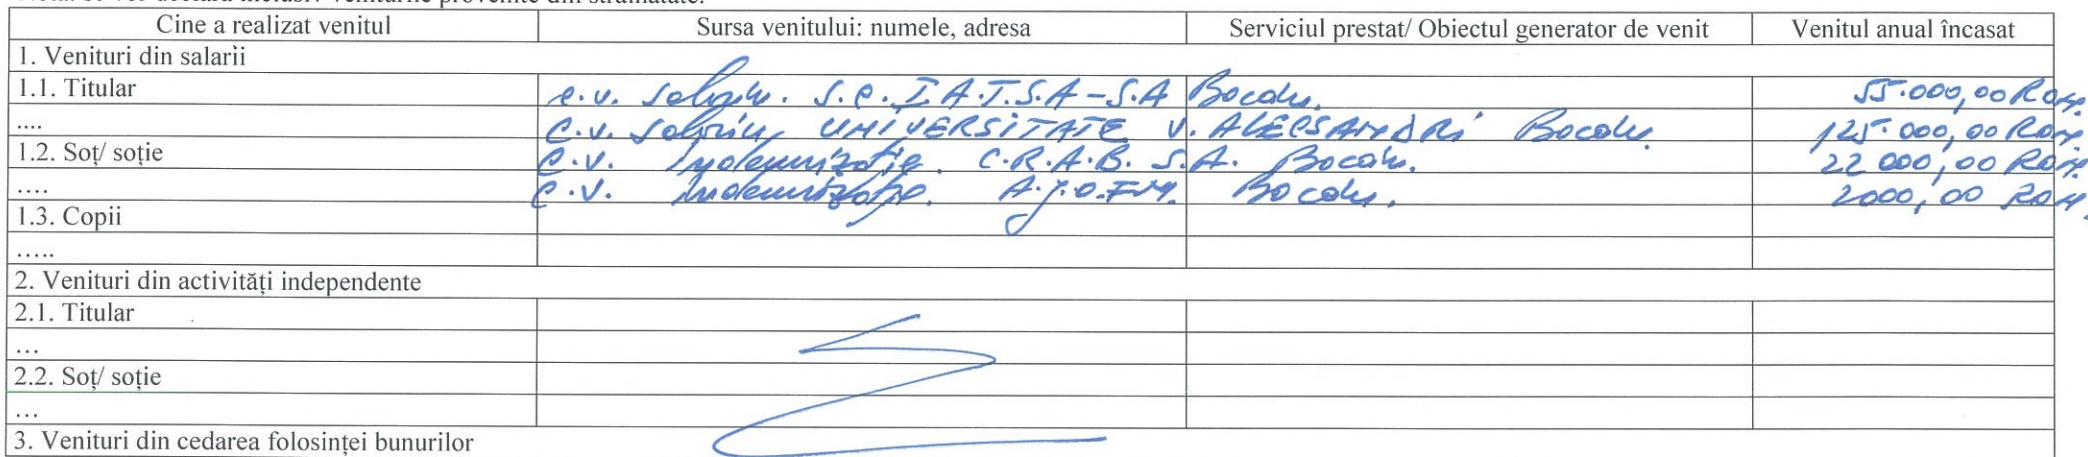 Cine a realizat venitul Sursa venitului: numele, adresa Serviciul prestat/ Obiectul generator de venit Venitul anual încasat
1. Venituri din salarii
1.1. Titular c.v. salariu. S.C. I.A.T.S.A - S.A Bacău. 55.000,00 Ron.
.... C.v. salariu, UNIVERSITATE V. ALECSANDRI Bacău. 125.000,00 Ron.
1.2. Soț/ soție C.v. Indemnizație. C.R.A.B. S.A. Bacău. 22 000,00 Ron.
.... C.v. Indemnizație. A.J.O.F.M. Bacău. 2000,00 RON.
1.3. Copii
.....
2. Venituri din activități independente
2.1. Titular
...
2.2. Soț/ soție
...
3. Venituri din cedarea folosinței bunurilor